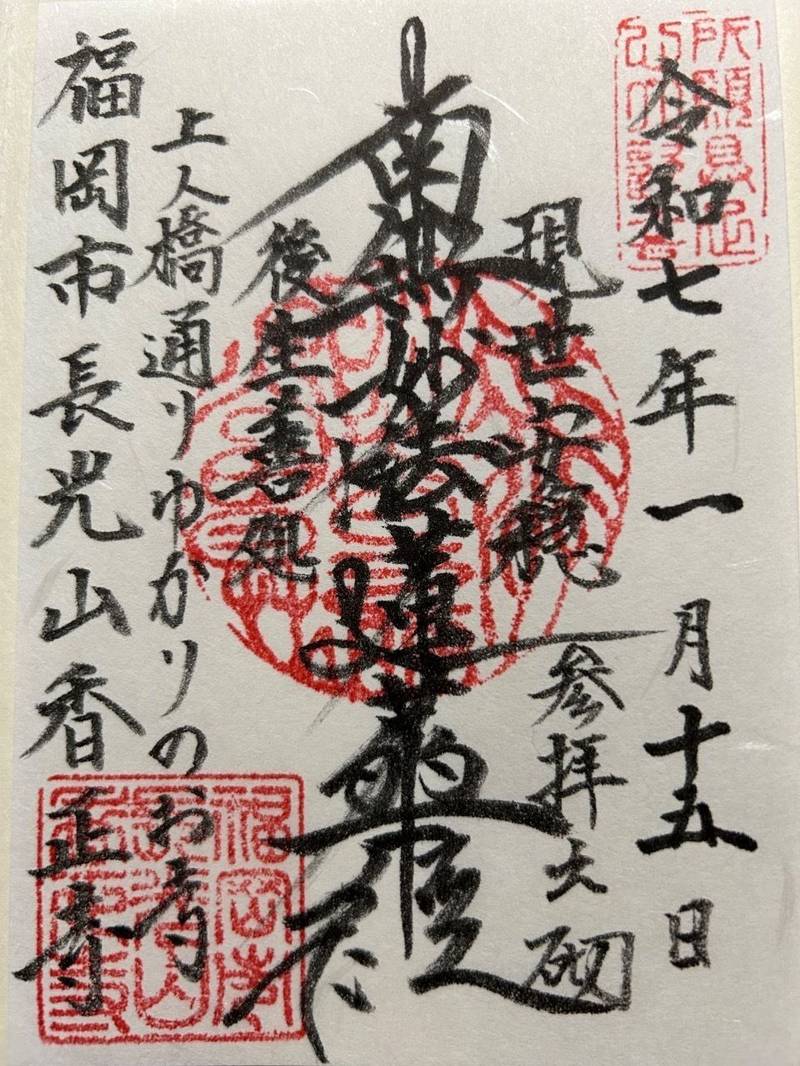 令和七年一月十五日
現世安穏
参拝之砌
南無妙法蓮華経
後生善処
上人橋通りゆかりのお寺
福岡市長光山香正寺